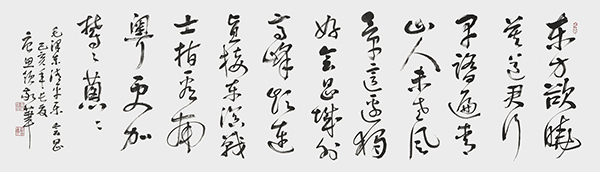 东方欲晓
莫道君行
早踏遍青
山人未老风
景這边独
好会昌城外
高峰颠连
直接东溟战
士指看南
粤更加
郁々葱々
毛泽东清平乐会昌
己亥年之夏